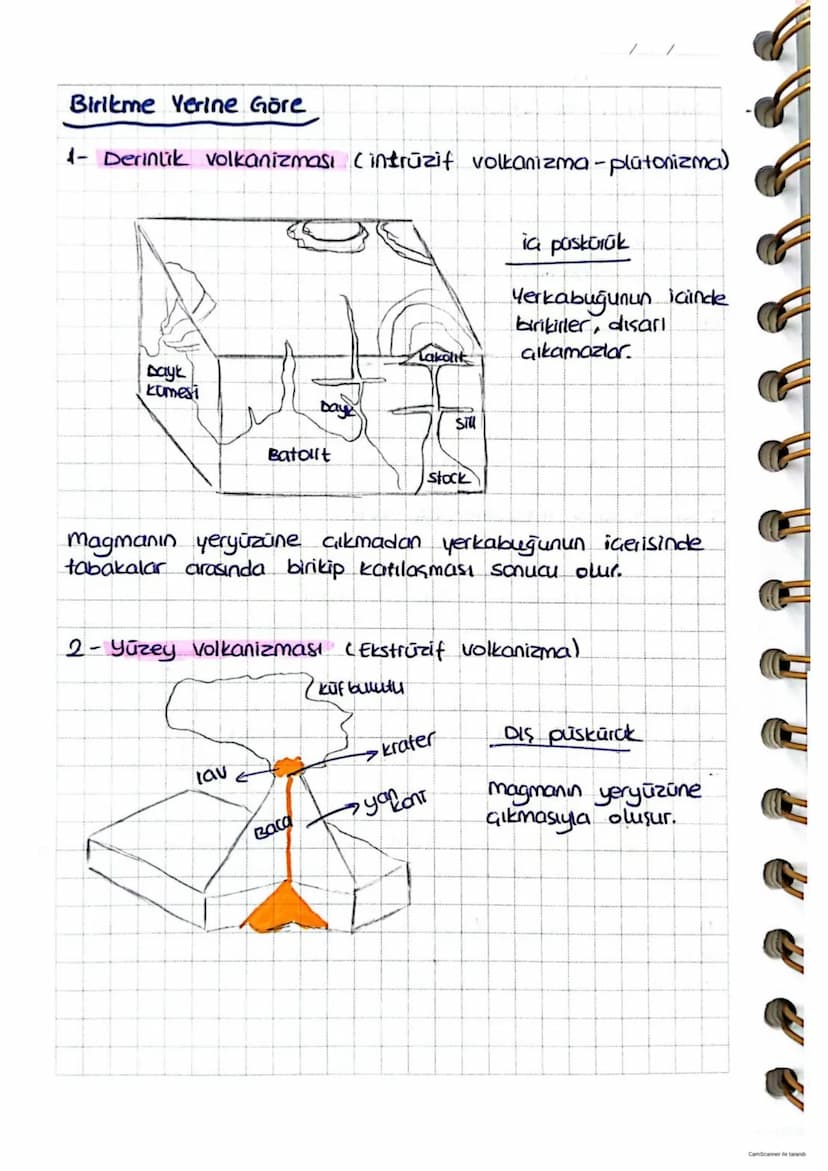 / /
Birikme Yerine Göre
1- Derinlik volkanizması (intrüzif volkanizma - plütonizma)
iç püskürük
Yerkabuğunun içinde
birikirler, dışarı
çıkamazlar.
Lakolit
Dayk
kümesi
Dayk
Sill
Batolit
Stock
Magmanın yeryüzüne çıkmadan yerkabuğunun içerisinde
tabakalar arasında birikip katılaşması sonucu olur.
2- Yüzey volkanizması (Ekstrüzif volkanizma)
kül bulutu
Dış püskürük
krater
lav
yan koni
Baca
Magmanın yeryüzüne
çıkmasıyla oluşur.
CamScanner ile tarandı